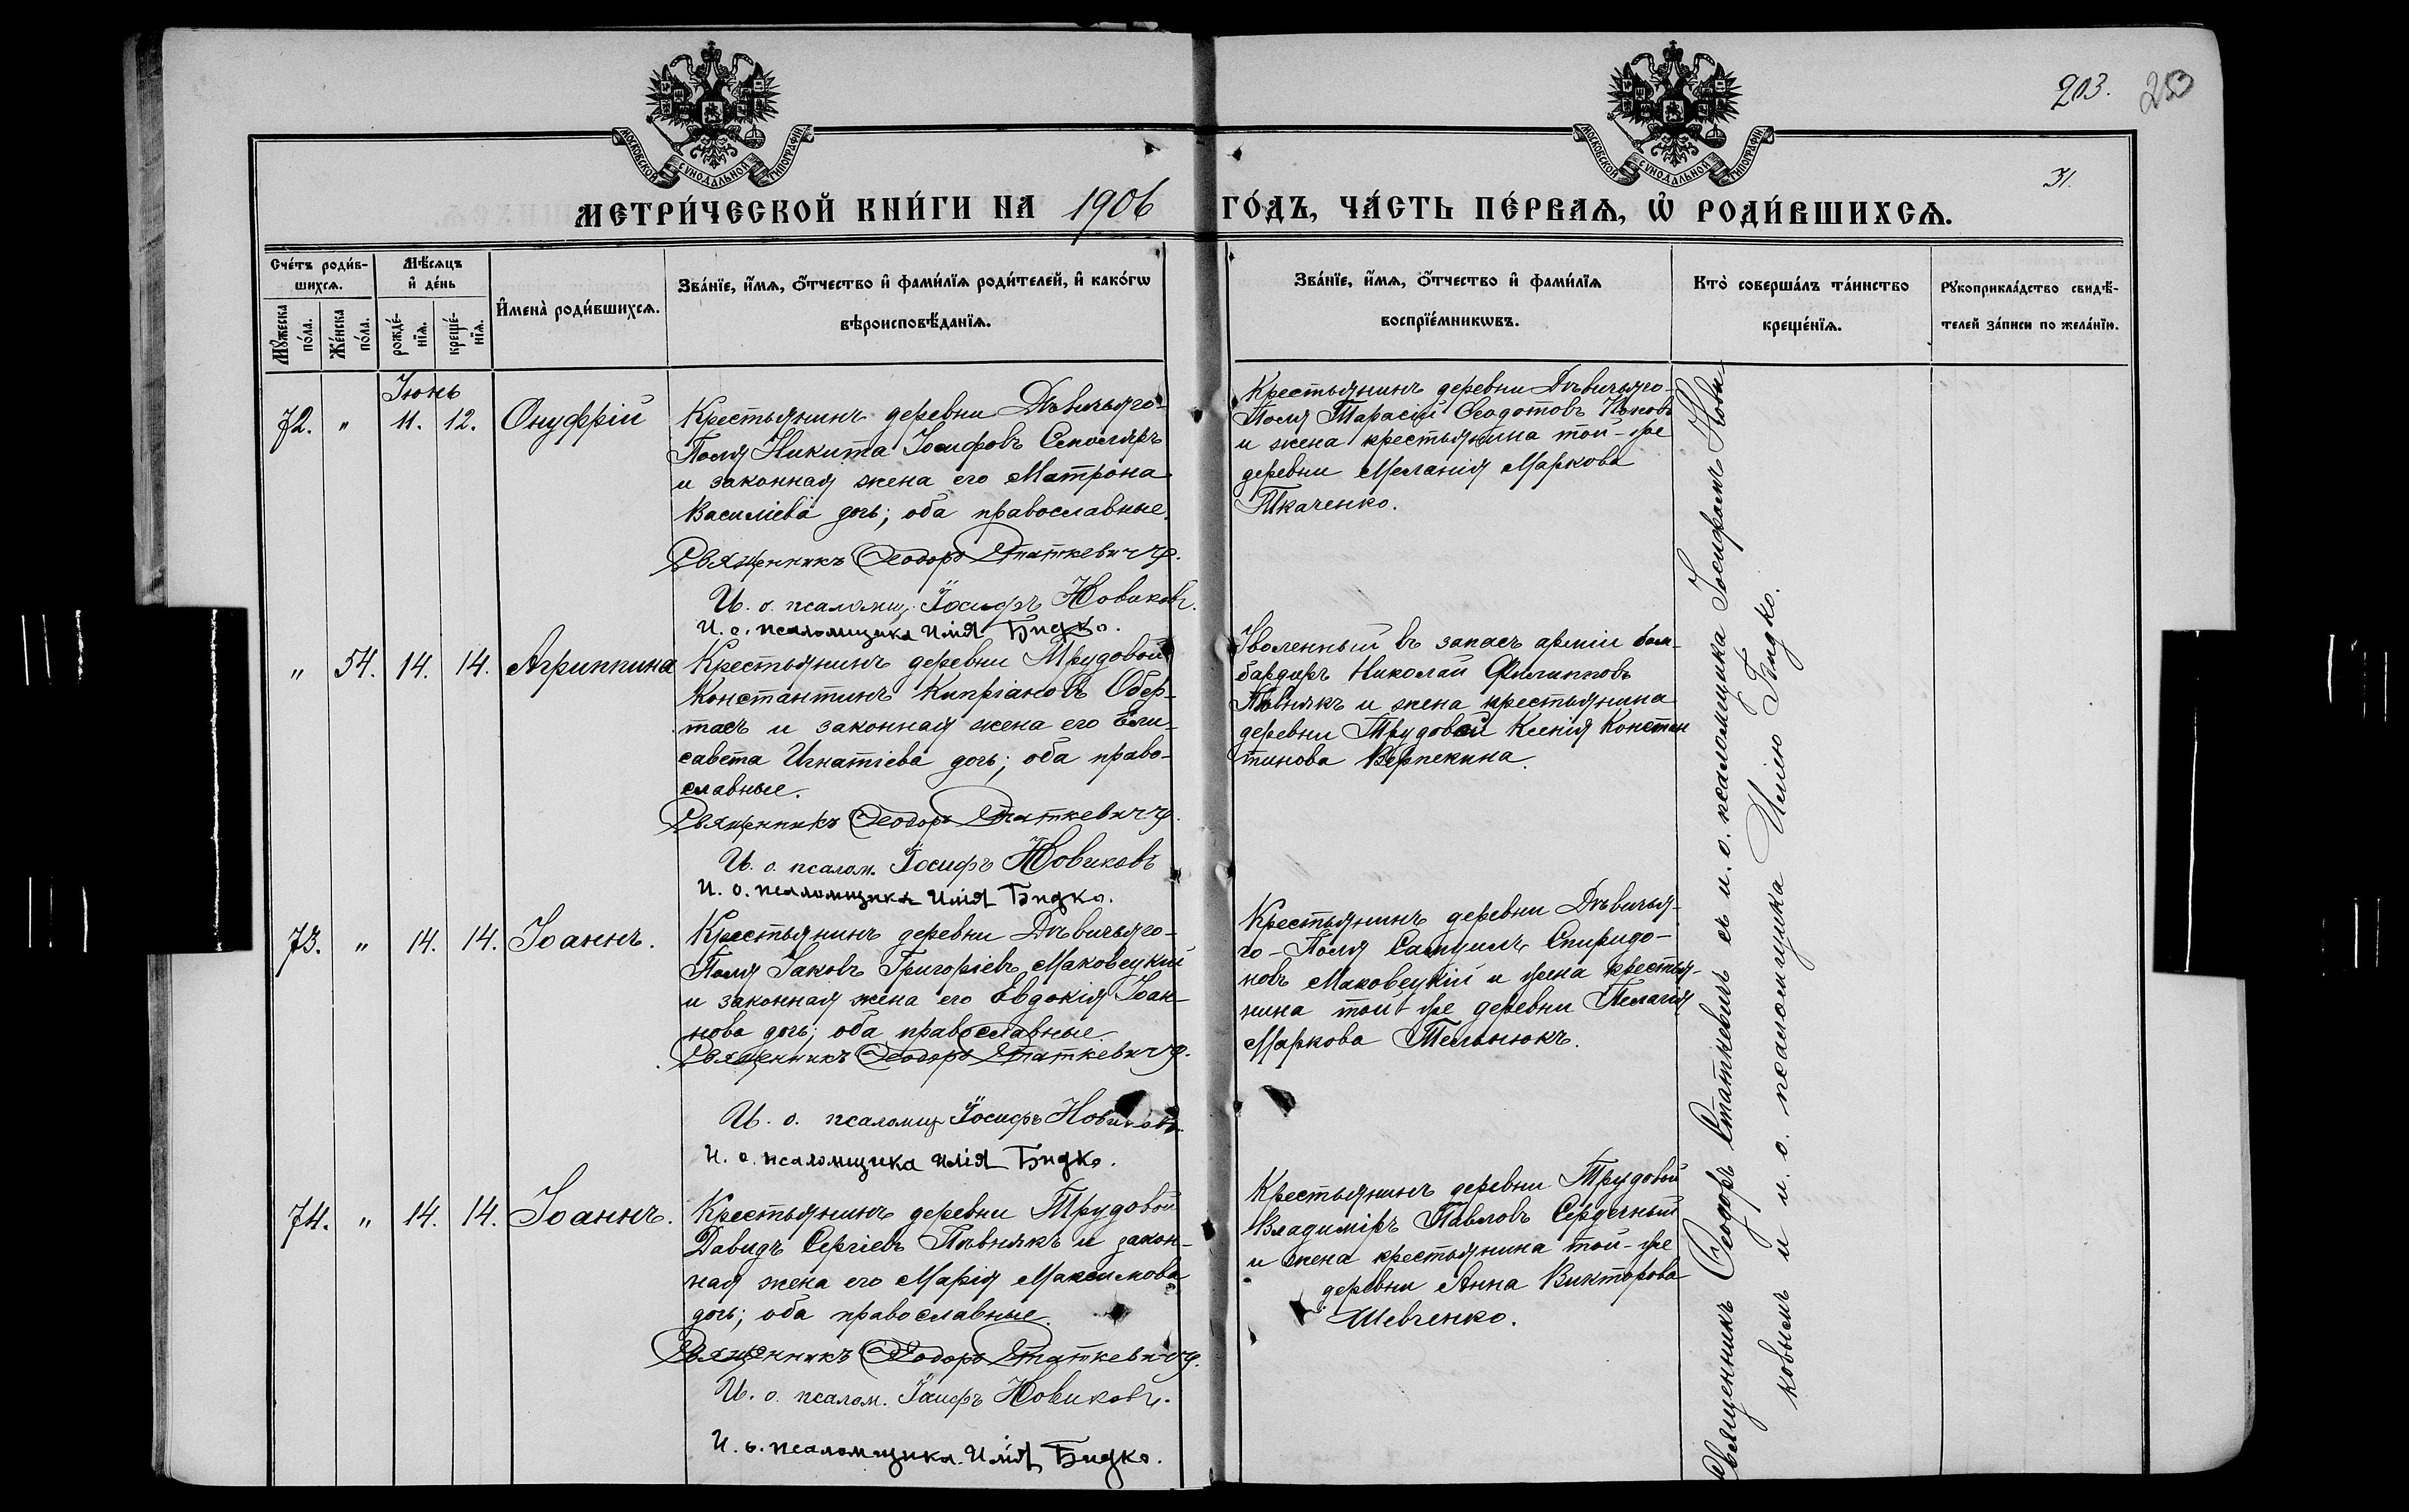 203. 253
31.
МОСКОВСКОЙ СѴНОДАЛЬНОЙ ТИПОГРАФІИ
МОСКОВСКОЙ СѴНОДАЛЬНОЙ ТИПОГРАФІИ
МЕТРИ́ЧЕСКОЙ КНИ́ГИ НА 1906 ГО́ДЪ, ЧА́СТЬ ПЕ́РВАѦ, Ѡ҆ РОДИ́ВШИХСѦ.
Сче́тъ роди́в-
шихсѧ.
Мꙋ́жеска по́ла.
Же́нска по́ла.
Мѣ́сѧцъ
и҆ де́нь
рожде́-
нїѧ.
креще́-
нїѧ.
И҆мена̀ роди́вшихсѧ.
Зва́нїе, и҆́мѧ, ѻ҆́тчество и҆ фами́лїѧ роди́телей, и҆ како́гѡ
вѣроисповѣ́данїѧ.
Зва́нїе, и҆́мѧ, ѻ҆́тчество и҆ фами́лїѧ
воспрїе́мникѡвъ.
Кто̀ соверша́лъ та́инство
креще́нїѧ.
Рꙋкоприкла́дство свидѣ́-
телей за́писи по жела́нїю.
Іюнь
72. " 11. 12. Онуфрій
Крестьянинъ деревни Дѣвичьяго-
Поля Никита Іосифовъ Столяръ
и законная жена его Матрона
Василіева дочь; оба православные.
Священникъ Ѳеодоръ Статкевичъ.
И. о. псаломщ. Іосифъ Новиковъ.
И. о. псаломщика Илія Бидко.
Крестьянинъ деревни Дѣвичьяго-
Поля Тарасій Ѳеодотовъ
и жена крестьянина той-же
деревни Меланія Маркова
Ткаченко.
" 54. 14. 14. Агриппина
Крестьянинъ деревни Трудовой
Константинъ Кипріановъ Обер-
тасъ и законная жена его Ели-
савета Игнатіева дочь; оба право-
славные.
Священникъ Ѳеодоръ Статкевичъ.
И. о. псалом. Іосифъ Новиковъ
И. о. псаломщика Илія Бидко.
Уволенный въ запасъ арміи бом-
бардиръ Николай Филипповъ
Пѣвнякъ и жена крестьянина
деревни Трудовой Ксенія Констан
тинова Верпекина.
73. " 14. 14. Іоаннъ.
Крестьянинъ деревни Дѣвичьяго-
Поля Іаковъ Григоріевъ Маковецкій
и законная жена его Евдокія Іоан-
нова дочь; оба православные.
Священникъ Ѳеодоръ Статкевичъ.
И. о. псаломщ Іосифъ Новиковъ.
И. о. псаломщика Илія Бидко.
Крестьянинъ деревни Дѣвичья-
го-Поля Самуилъ Спиридо-
новъ Маковецкій и жена крестья-
нина той-же деревни Пелагія
Маркова Тельнюкъ.
74. " 14. 14. Іоаннъ.
Крестьянинъ деревни Трудовой
Давидъ Сергіевъ Пѣвнякъ и закон-
ная жена его Марія Максимова
дочь; оба православные.
Священникъ Ѳеодоръ Статкевичъ.
И. о. псалом. Іосифъ Новиковъ.
И. о. псаломщика Илія Бидко.
Крестьянинъ деревни Трудовой
Владиміръ Павловъ Сердечный
и жена крестьянина той-же
деревни Анна Викторова
Шевченко.
Священникъ Ѳеодоръ Статкевичъ съ и. о. псаломщика Іосифомъ Нови-
ковымъ и и. о. псаломщика Иліею Бидко.